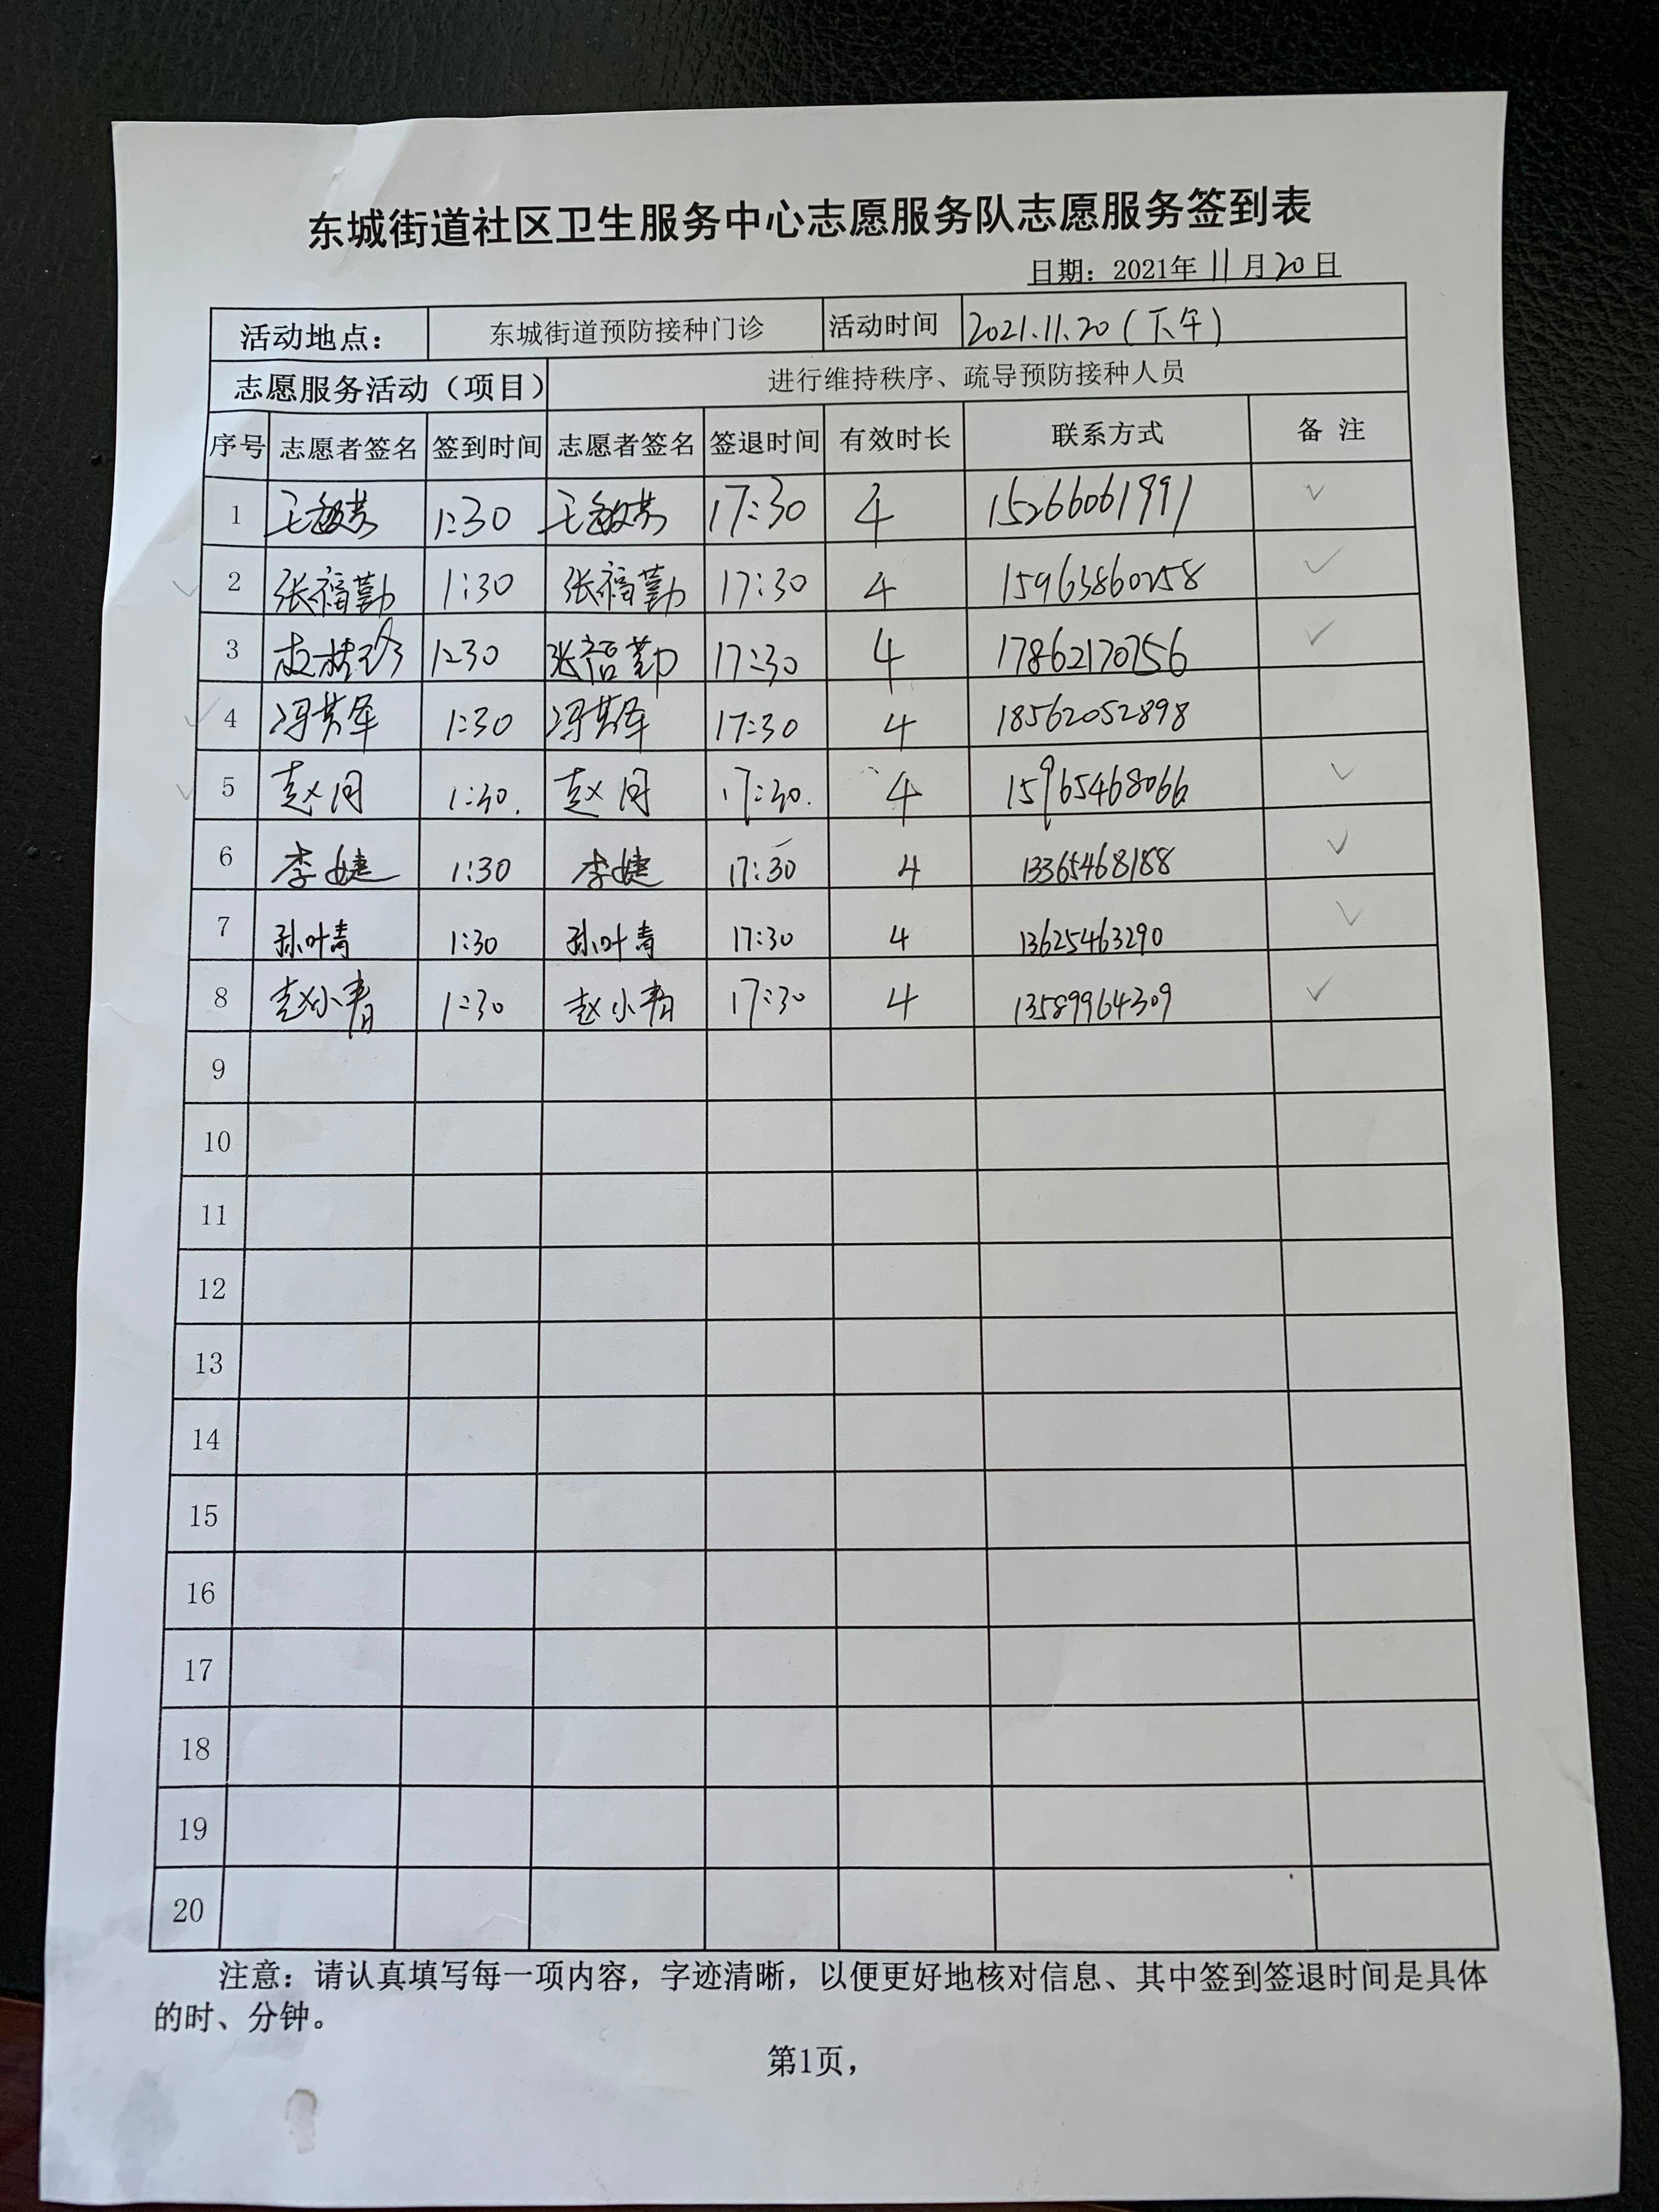 东城街道社区卫生服务中心志愿服务队志愿服务签到表
日期：2021年11月20日
活动地点： 东城街道预防接种门诊 活动时间 2021.11.20（下午）
志愿服务活动（项目） 进行维持秩序、疏导预防接种人员
序号 志愿者签名 签到时间 志愿者签名 签退时间 有效时长 联系方式 备 注
1 王敏芳 1:30 王敏芳 17:30 4 15266061991 ✓
2 张福勤 1:30 张福勤 17:30 4 15963860258 ✓
3 桂珍 1:30 张福勤 17:30 4 17862170756 ✓
4 冯芳军 1:30 冯芳军 17:30 4 18562052898
5 赵月 1:30. 赵月 17:30. 4 15965468066 ✓
6 李婕 1:30 李婕 17:30 4 13365468188 ✓
7 孙叶青 1:30 孙叶青 17:30 4 13625463290 ✓
8 赵小青 1:30 赵小青 17:30 4 13589964309 ✓
9
10
11
12
13
14
15
16
17
18
19
20
注意：请认真填写每一项内容，字迹清晰，以便更好地核对信息、其中签到签退时间是具体
的时、分钟。
第1页，